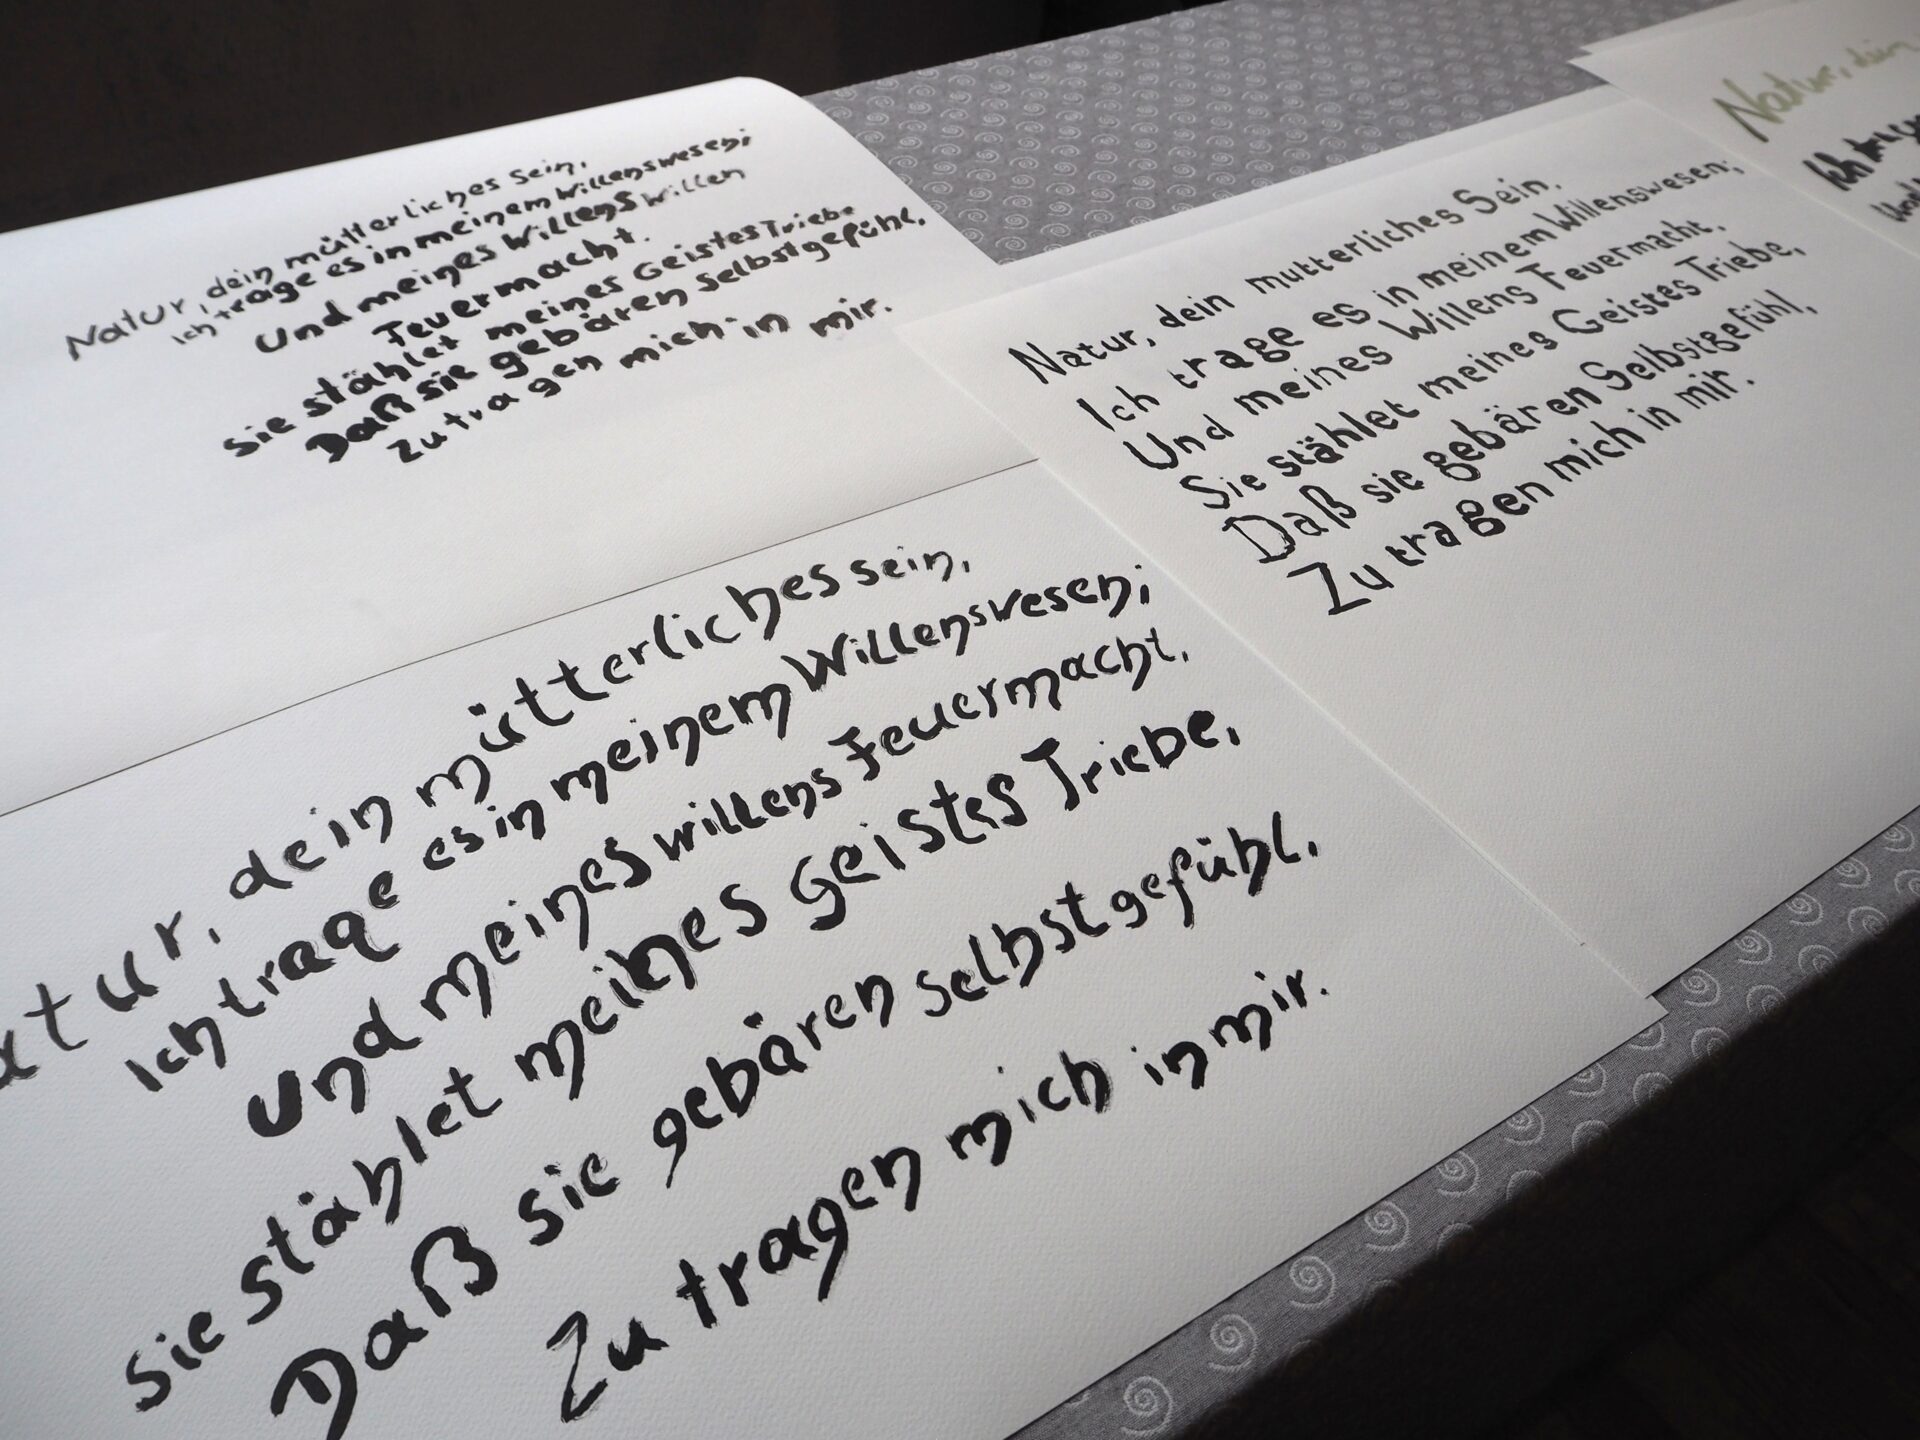 Natur, dein mütterliches Sein,
Ich trage es in meinem Willenswesen;
Und meines Willens Willen
Feuermacht.
Sie stählet meines Geistes Triebe
Daß sie gebären Selbstgefühl.
Zu tragen mich in mir.
atur, dein mütterliches Sein,
Ich trage es in meinem Willenswesen;
Und meines Willens Feuermacht.
Sie stählet meines Geistes Triebe,
Daß sie gebären Selbstgefühl.
Zu tragen mich in mir.
Natur, dein mutterliches Sein,
Ich trage es in meinem Willenswesen;
Und meines Willens Feuermacht.
Sie stählet meines Geistes Triebe,
Daß sie gebären Selbstgefühl,
Zu tragen mich in mir.
Natur, dein
Ich
Und